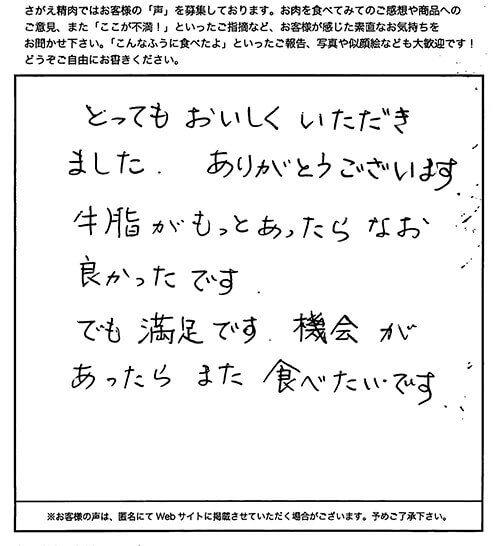 さがえ精肉ではお客様の「声」を募集しております。お肉を食べてみてのご感想や商品への
ご意見、また「ここが不満！」といったご指摘など、お客様が感じた素直なお気持ちを
お聞かせ下さい。「こんなふうに食べたよ」といったご報告、写真や似顔絵なども大歓迎です！
どうぞご自由にお書きください。
とっても おいしく いただき
ました. ありがとうございます
牛脂がもっとあったらなお
良かったです.
でも 満足です. 機会 が
あったら また 食べたいです
※お客様の声は、匿名にてWebサイトに掲載させていただく場合がございます。予めご了承下さい。